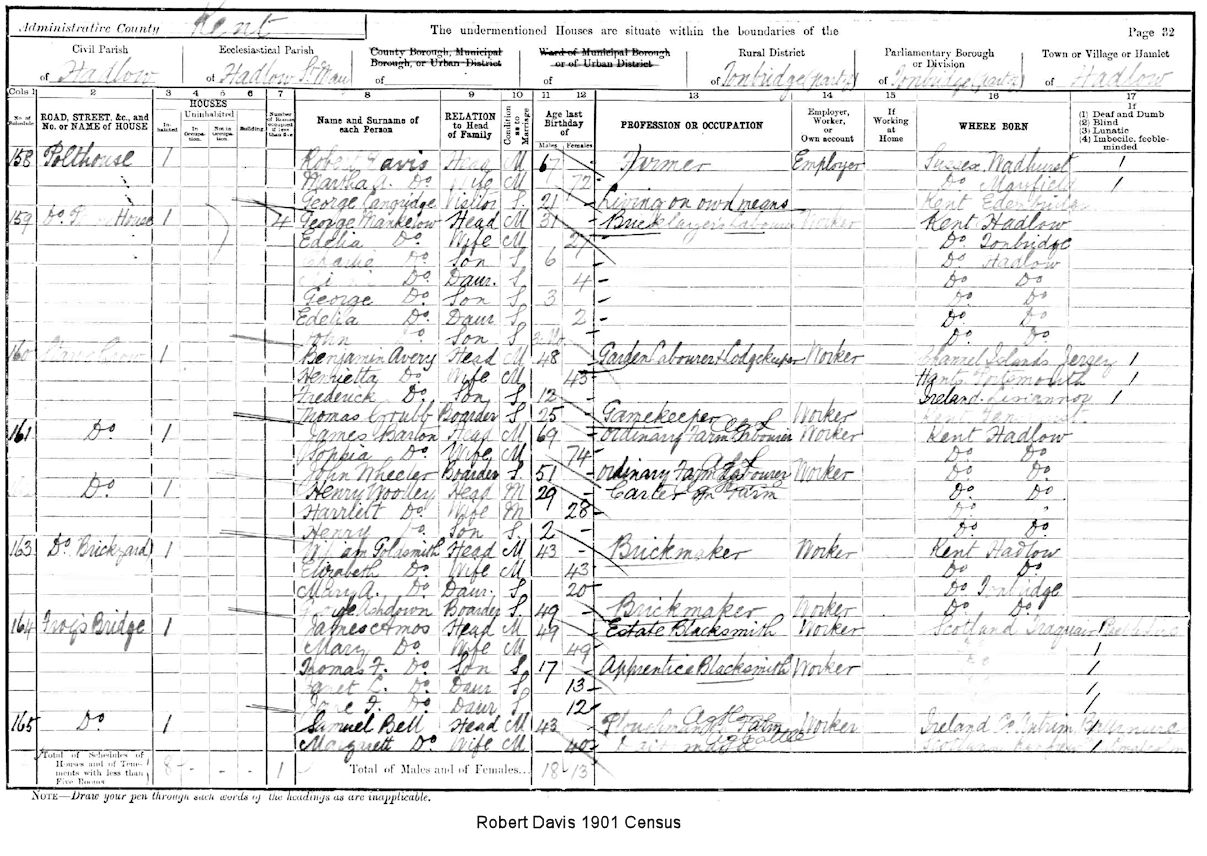 Administrative County Kent
The undermentioned Houses are situate within the boundaries of the
Page 32
Civil Parish
of Hadlow
Ecclesiastical Parish
of Hadlow St Mary
County Borough, Municipal
Borough, or Urban District
of
Ward of Municipal Borough
or of Urban District
of
Rural District
of Tonbridge (part of)
Parliamentary Borough
or Division
of Tonbridge (part of)
Town or Village or Hamlet
of Hadlow
Cols 1 2 3 4 5 6 7 8 9 10 11 12 13 14 15 16 17
No. of Schedule
ROAD, STREET, &c., and No. or NAME of HOUSE
HOUSES
Inhabited
Uninhabited
In Occupation.
Not in Occupation
Building
Number of Rooms occupied if less than five
Name and Surname of each Person
RELATION to Head of Family
Condition as to Marriage
Age last Birthday of
Males
Females
PROFESSION OR OCCUPATION
Employer, Worker, or Own account
If Working at Home
WHERE BORN
If
(1) Deaf and Dumb
(2) Blind
(3) Lunatic
(4) Imbecile, feeble-minded
158 Polthouse 1 Robert Davis Head M 67 Farmer Employer Sussex Wadhurst
Martha A. Do Wife M 72 Do Mayfield
George Langridge Visitor S 21 Living on own means Kent
159 Do House 1 4 George Mankelow Head M 31 Bricklayer's Labourer Worker Kent Hadlow
Edelia Do Wife M 27 Do Tonbridge
Do Son S 6 Do Hadlow
Do Daur. S 4 Do Do
George Do Son S 3 Do Do
Edelia Do Daur S 2 Do Do
John Do Son S Do Do
160 1 Benjamin Avery Head M 48 Garden Labourer & Lodgekeeper Worker Channel Islands Jersey
Henrietta Do Wife M 45 Hants Portsmouth
Frederick Do Son S 12 Ireland
Thomas Boarder S 25 Gamekeeper Worker Kent
161 Do 1 James Barton Head M 69 Ordinary Farm Labourer Worker Kent Hadlow
Sophia Do Wife M 74 Do Do
John Wheeler Boarder S 51 Ordinary Farm Labourer Worker Do Do
Do 1 Henry Woolley Head M 29 Carter on Farm Do Do
Harriett Do Wife M 28 Do
Henry Do Son S 2 Do Do
163 Do Brickyard 1 Goldsmith Head M 43 Brickmaker Worker Kent Hadlow
Elizabeth Do Wife M 43 Do Do
Mary A. Do Daur. S 20 Do Tonbridge
Ashdown Boarder S 49 Brickmaker Worker Do Do
164 Bridge 1 James Amos Head M 49 Estate Blacksmith Worker Scotland Traquair
Mary Do Wife M 49
Thomas F. Do Son S 17 Apprentice Blacksmith Worker
Janet L. Do Daur S 13
Jane F. Do Daur S 12
165 Do 1 Samuel Bell Head M 43 Ploughman Farm Worker Ireland Co Antrim
Do Wife M 40
Total of Schedules of Houses and of Tenements with less than Five Rooms
8 - - - 1
Total of Males and of Females...
18 13
NOTE—Draw your pen through such words of the headings as are inapplicable.
Robert Davis 1901 Census